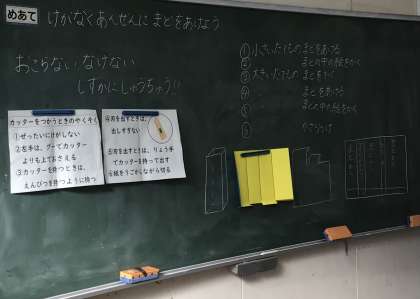 めあて けがなくあんぜんに まどをあけよう
おこらない なげない
しずかにしゅうちゅう!!
①小さいたてもの まどをあける
② 〃 まどの中の絵をかく
③大きいたてもの まどをかく
④ 〃 まどをあける
⑤ 〃 まどの中の絵をかく
⑥
カッターをつかうときのやくそく
①ぜったいにけがしない
②左手は、グーでカッター
よりも上でおさえる
③カッターを持つときは、
えんぴつを持つように持つ
④刃を出すときは、
出しすぎない
⑤刃を出すときは、りょう手
でカッターを持って出す
⑥紙をうごかしながら切る